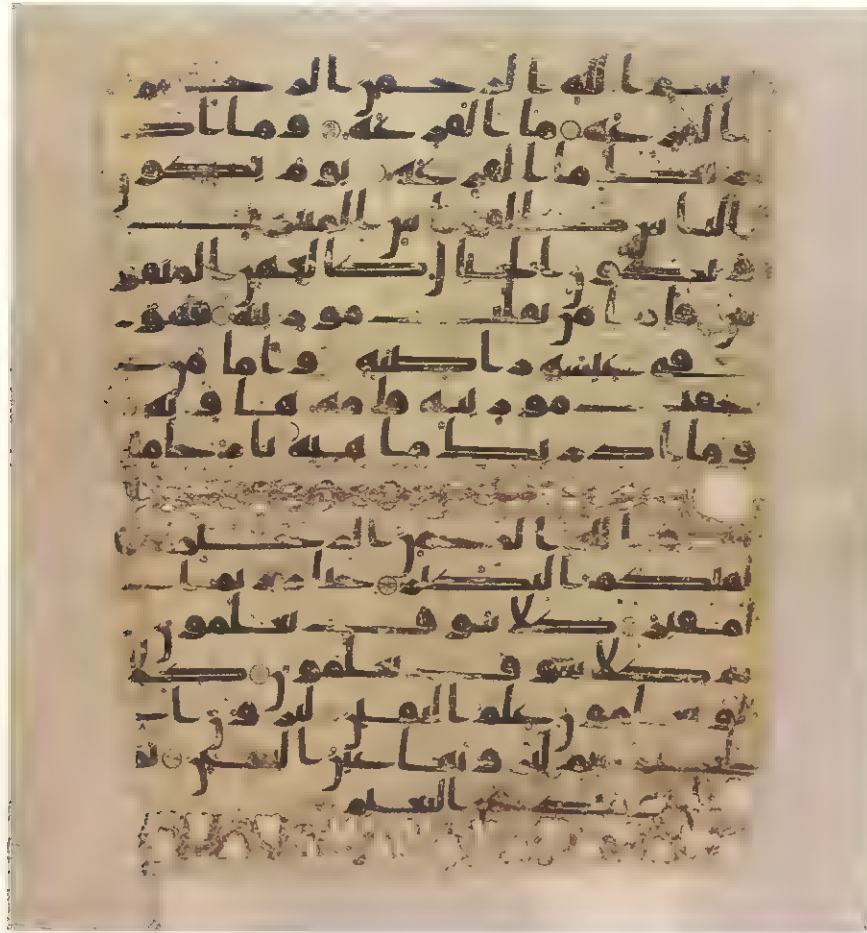 بسم الله الرحمن الرحيم
القرعة ما القرعة وما اد
ريك ما القرعة يوم يكون
الناس كالفراش المبثو
ث وتكون الجبال كالعهن المنفو
ش فاما من ثقلت موزينه فهو
في عيشة راضية واما من
خفت موزينه فامه هاوية
وما ادريك ما هيه نار حامية
بسم الله الرحمن الرحيم
الهيكم التكثر حتى زرتم
المقبر كلا سوف تعلمون
ثم كلا سوف تعلمون كلا
لو تعلمون علم اليقين لترون ا
لجحيم ثم لترونها عين اليقين ثم
لتسئلن يومئذ عن النعيم